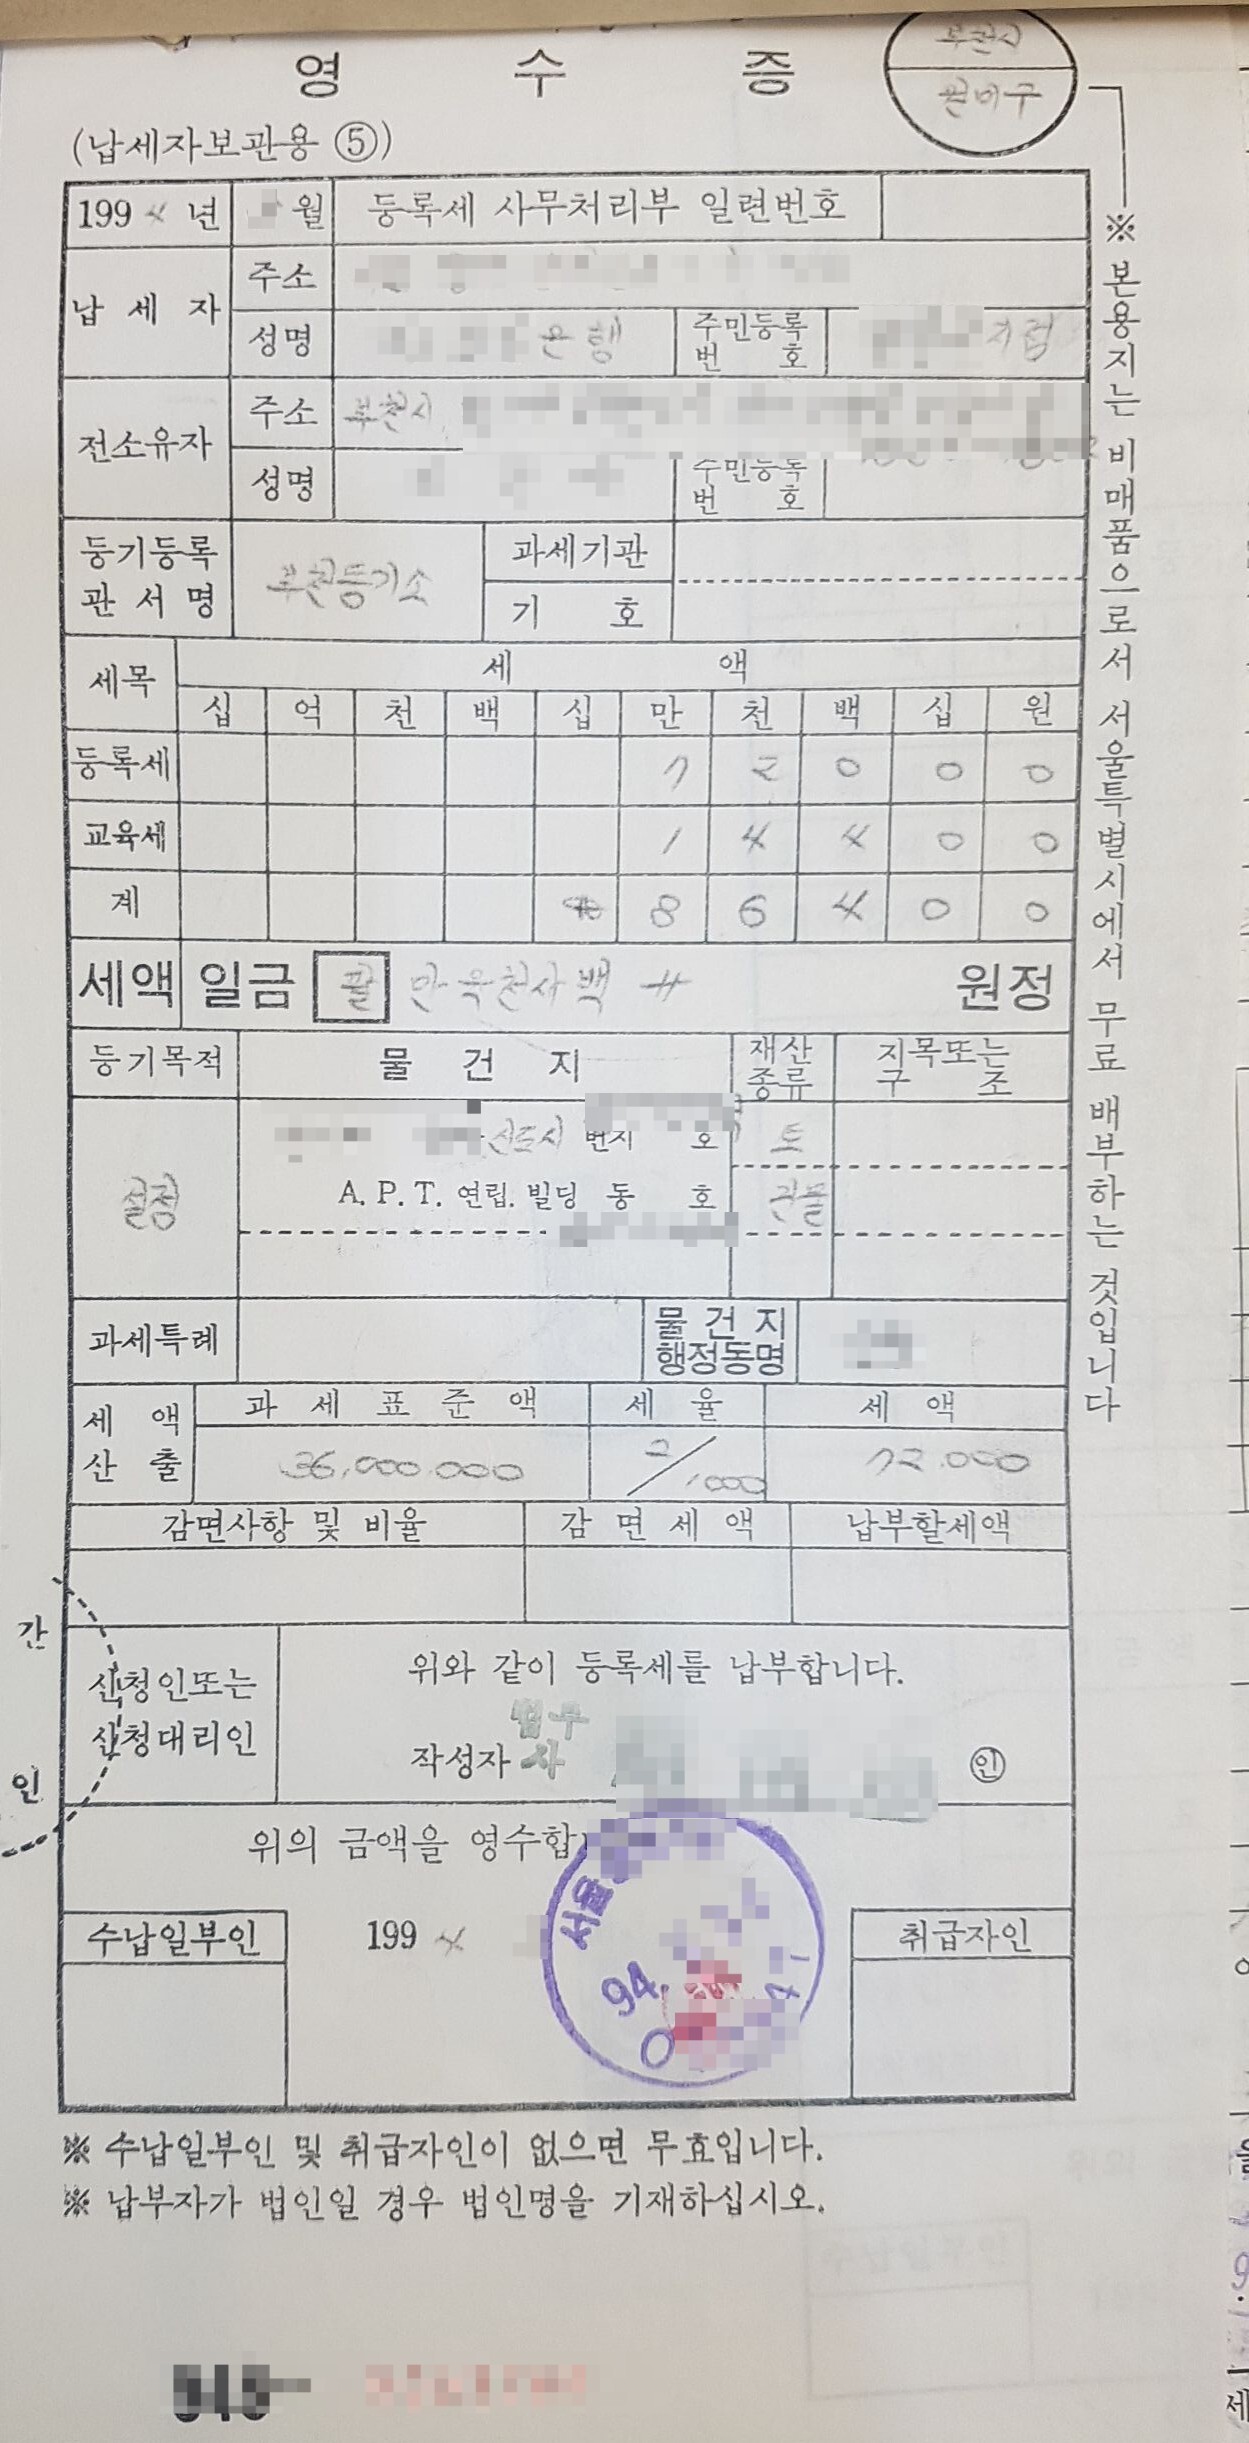 영 수 증
부천시
원미구
(납세자보관용 ⑤)
1994 년 월 등록세 사무처리부 일련번호
납 세 자
주소
성명 은행 주민등록 번 호 지점
전소유자
주소 부천시
성명 주민등록 번 호
등기등록 관 서 명 부천등기소 과세기관
기 호
세목 세 액
십 억 천 백 십 만 천 백 십 원
등록세 7 2 0 0 0
교육세 1 4 4 0 0
계 8 6 4 0 0
세액 일금 팔 만 육천사백 # 원정
등기목적 물 건 지 재산 종류 지목또는 구 조
설정 신도시 번지 호 토
A. P. T. 연립. 빌딩 동 호 건물
과세특례 물 건 지 행정동명
세 액 산 출 과 세 표 준 액 세 율 세 액
36,000.000 2/1000 72.000
감면사항 및 비율 감 면 세 액 납부할세액
간 인
신청인또는 신청대리인
위와 같이 등록세를 납부합니다.
작성자 법무사 ㊞
위의 금액을 영수합
수납일부인 1994 취급자인
서울
94.
※ 수납일부인 및 취급자인이 없으면 무효입니다.
※ 납부자가 법인일 경우 법인명을 기재하십시오.
※ 본용지는 비매품으로서 서울특별시에서 무료 배부하는 것입니다